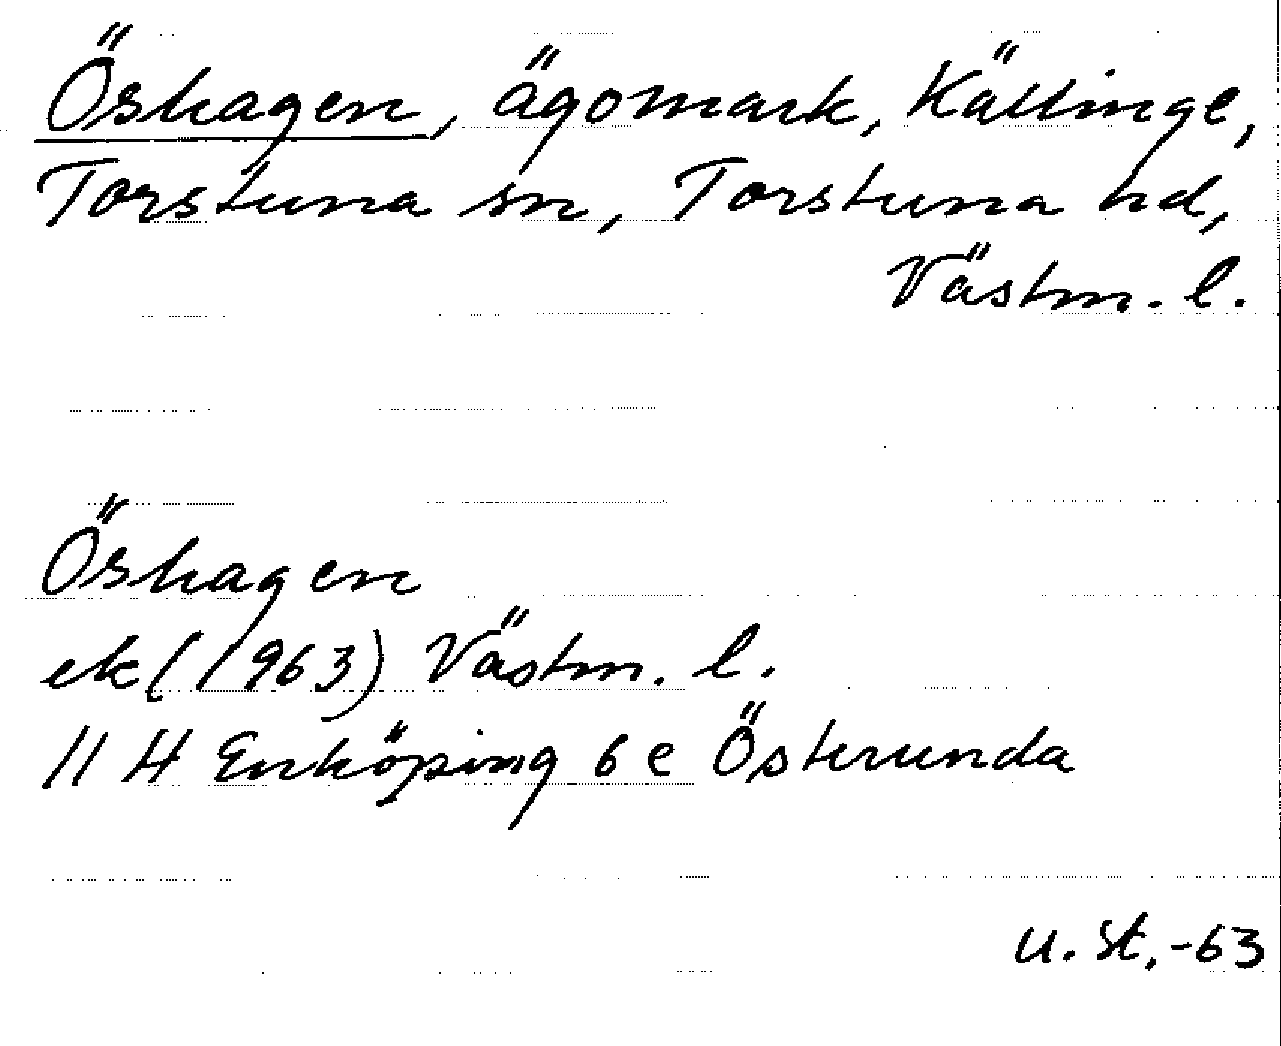 Öshagen, ägomark, Källinge,
Torstuna sn, Torstuna hd,
Västm. l.
Öshagen
ek (1963) Västm. l.
11 H Enköping 6 e Österunda
U. St. -63